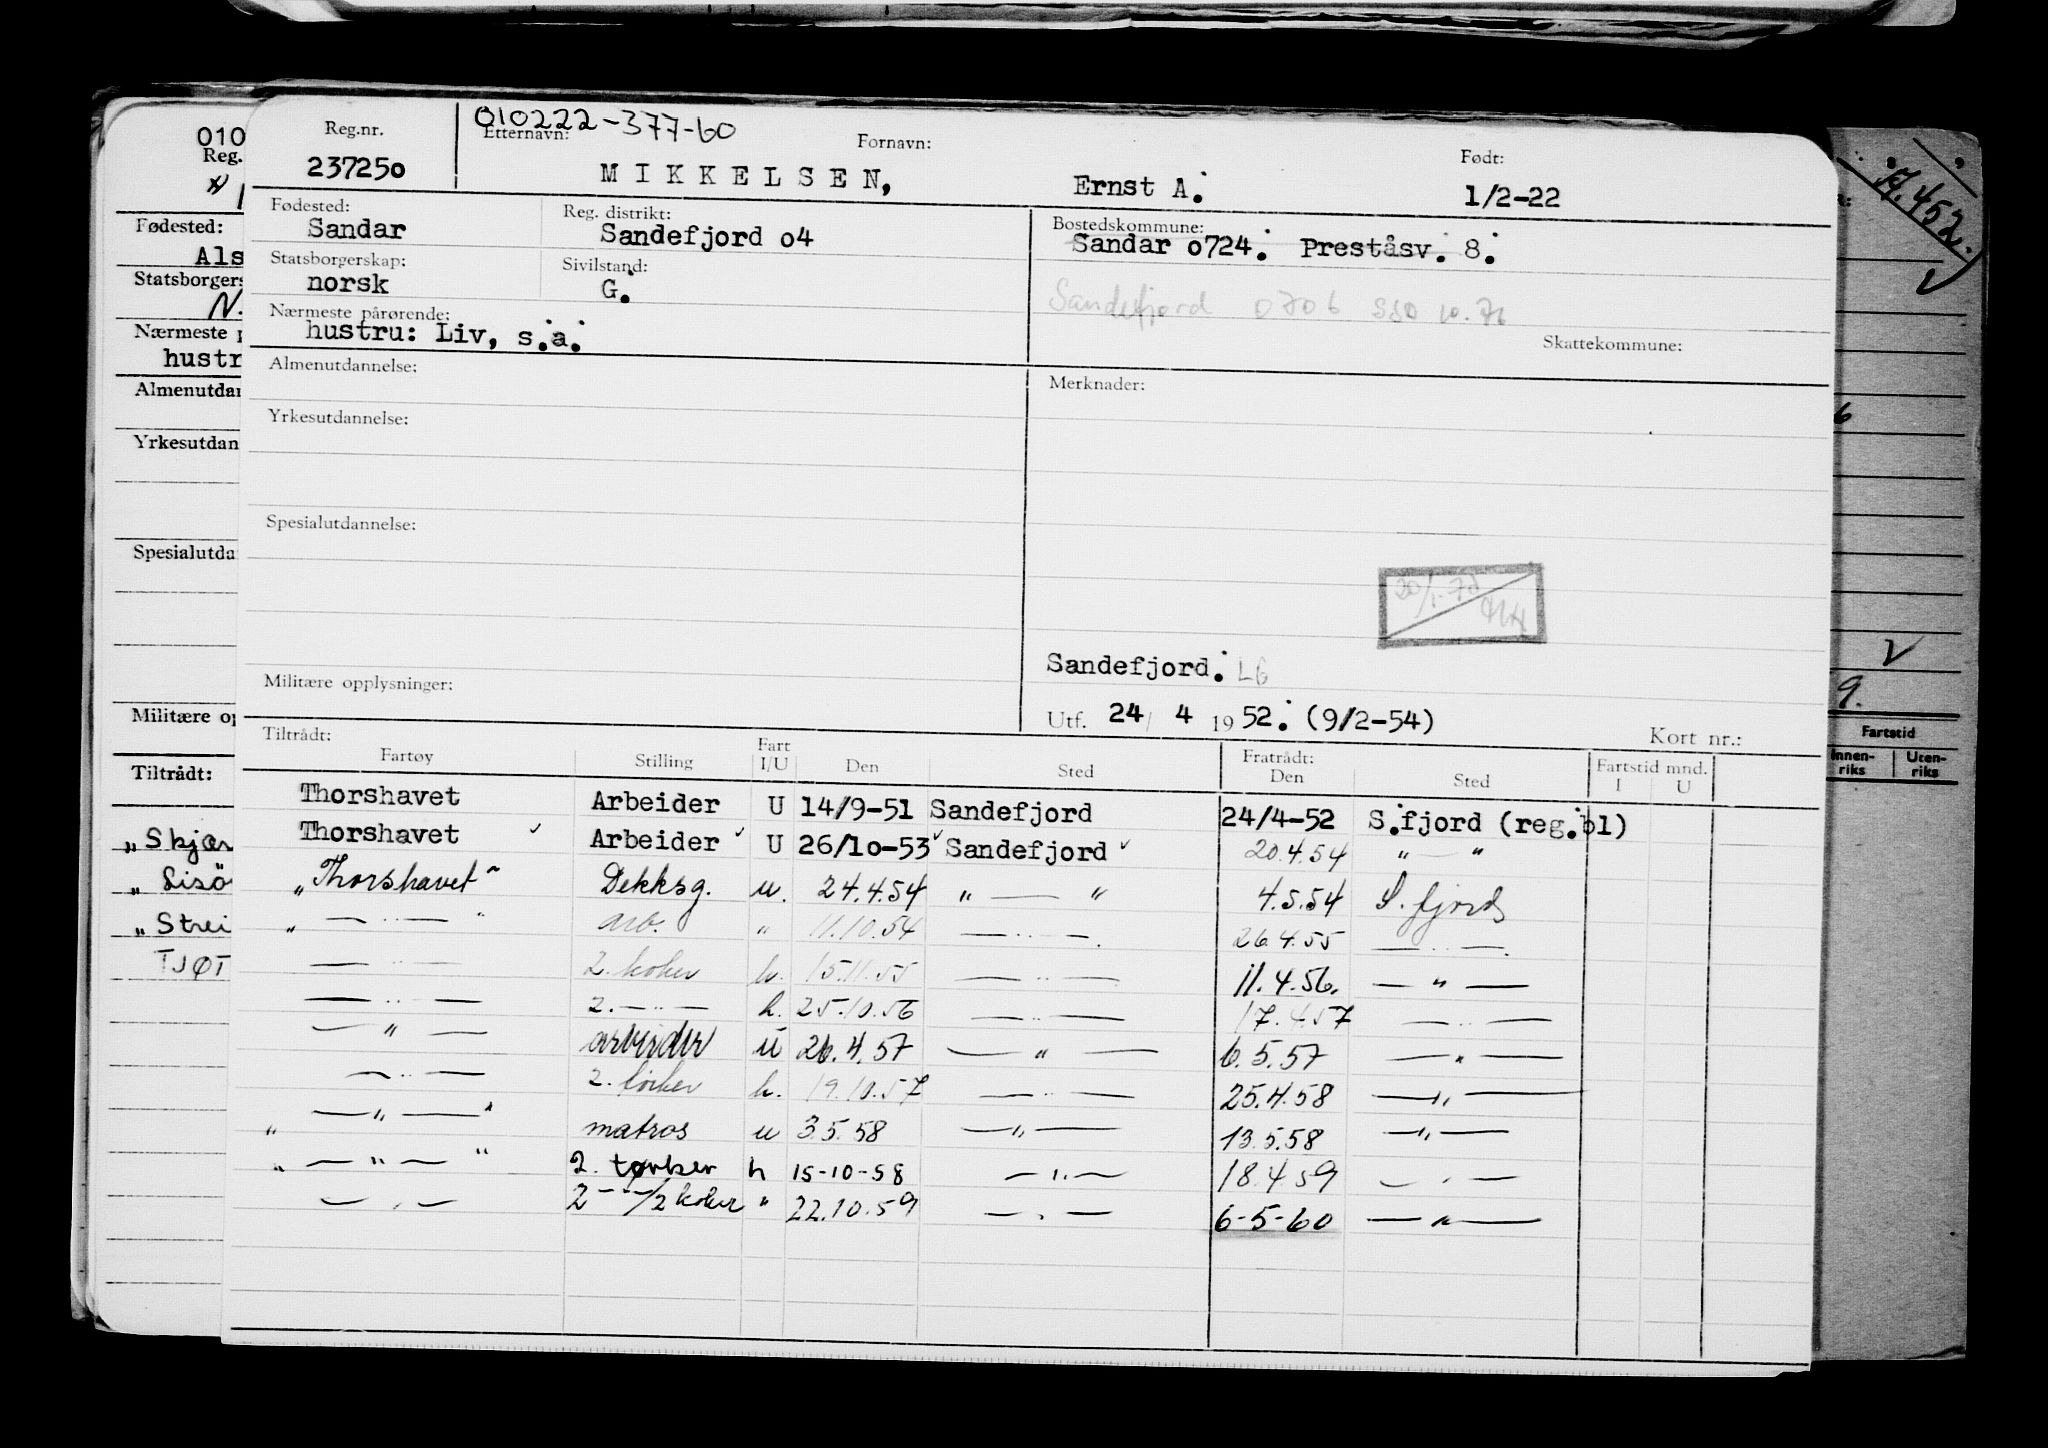 010222-377-60
Reg.nr. Etternavn: Fornavn: Født:
237250 MIKKELSEN, Ernst A. 1/2-22
Fødested: Reg. distrikt: Bostedskommune:
Sandar Sandefjord o4 Sandar o724. Preståsv. 8.
Statsborgerskap: Sivilstand:
norsk G. Sandefjord 0706 SSD 10.76
Nærmeste pårørende: Skattekommune:
hustru: Liv, s.a.
Almenutdannelse: Merknader:
Yrkesutdannelse:
Spesialutdannelse:
20/1-78
Sandefjord. LG
Militære opplysninger: Utf. 24/ 4 1952. (9/2-54)
Kort nr.:
Tiltrådt: Fratrådt:
Fartøy Stilling Fart I/U Den Sted Den Sted Fartstid mnd. I U
Thorshavet Arbeider U 14/9-51 Sandefjord 24/4-52 S.fjord (reg.bl)
Thorshavet ✓ Arbeider ✓ U 26/1o-53 ✓ Sandefjord ✓ 20.4.54 " — "
"Thorshavet" Dekksg. u. 24.4.54 " — " 4.5.54 S. fjord
" — " — " arb. " 11.10.54 — " — 26.4.55 — " —
— " — 2. koker h. 15.11.55 — " — 11.4.56. — " —
— " — 2. — " — h. 25.10.56 — " — 17.4.57 — " —
— " — arbeider u 26.4.57 — " — 6.5.57 — " —
— " — 2. h. 19.10.57 — " — 25.4.58 — " —
" — " — " matros u 3.5.58 — " — 13.5.58 — " —
" — " — " 2. tørker h 15-10-58 — " — 18.4 59 — " —
— " — 2 - " - /2 koker " 22.10.59 — " — 6-5-60 — " —
010
Reg.
Fødested:
Als
Statsborgers
N.
Nærmeste p
hustr
Almenutdan
Yrkesutdan
Spesialutda
Militære op
Tiltrådt:
"Skjær
"Lisö
"Strei
TJØT
452.
✓
6
✓
9.
Fartstid
Innen-riks Uten-riks